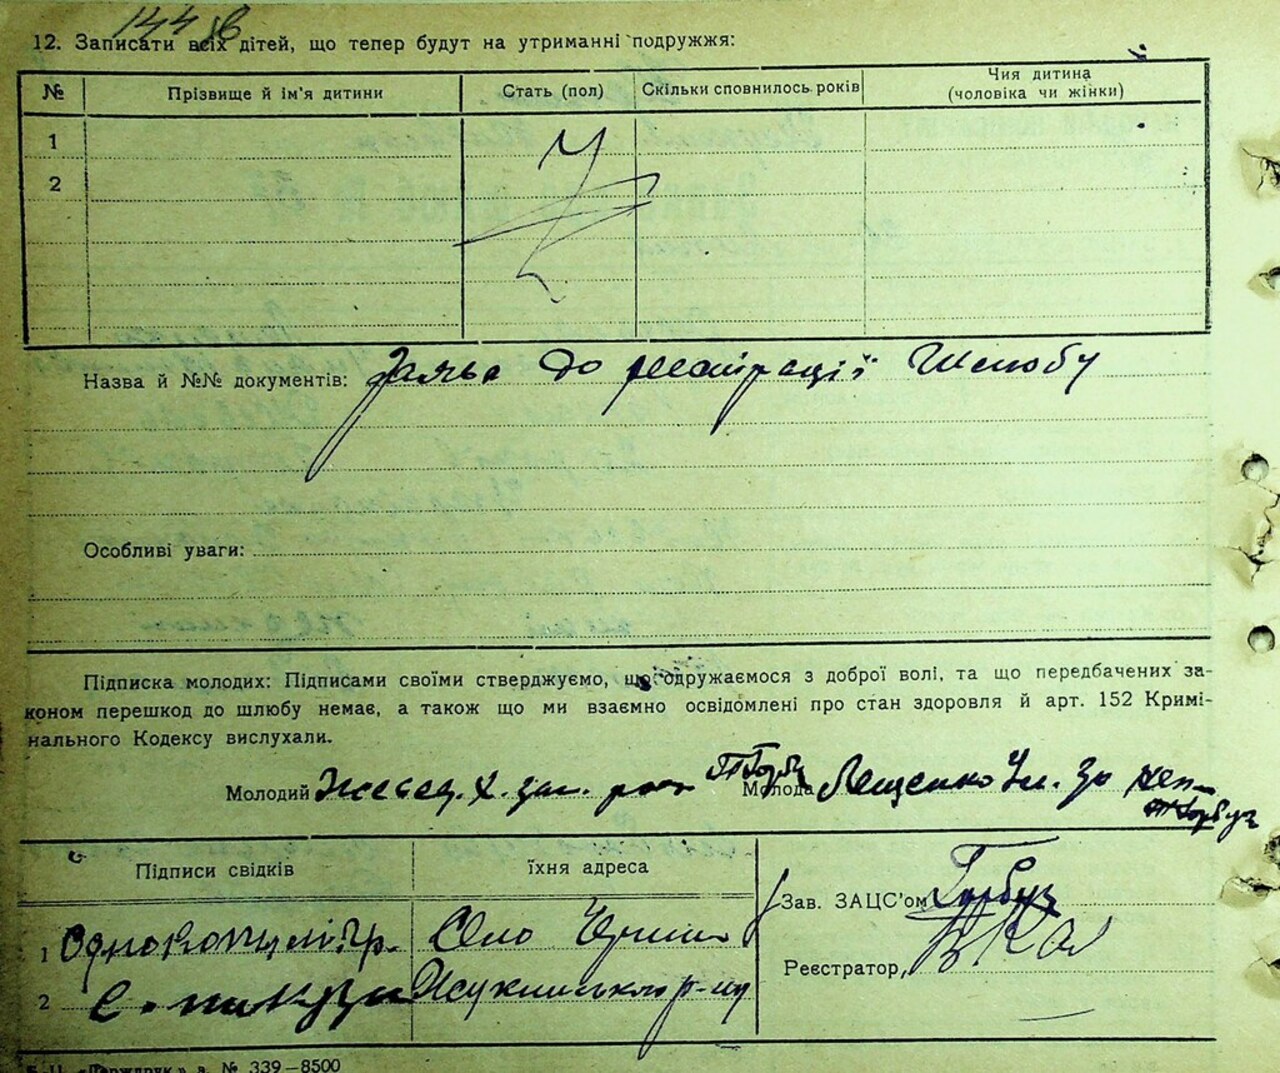 144 зв
12. Записати всіх дітей, що тепер будут на утриманні подружжя:
№ Прізвище й ім'я дитини Стать (пол) Скільки сповнилось років Чия дитина
(чоловіка чи жінки)
1
2
Назва й №№ документів: Заява до реєстрації Шлюбу
Особливі уваги:
Підписка молодих: Підписами своїми стверджуємо, що одружаємося з доброї волі, та що передбачених за-
коном перешкод до шлюбу немає, а також що ми взаємно освідомлені про стан здоровля й арт. 152 Кримі-
нального Кодексу вислухали.
Молодий Молода Лещенко Ул. за
Підписи свідків їхня адреса
Зав. ЗАЦС'ом Горбуз
1 Село
Реєстратор,
2 р-ну
№ 339—8500